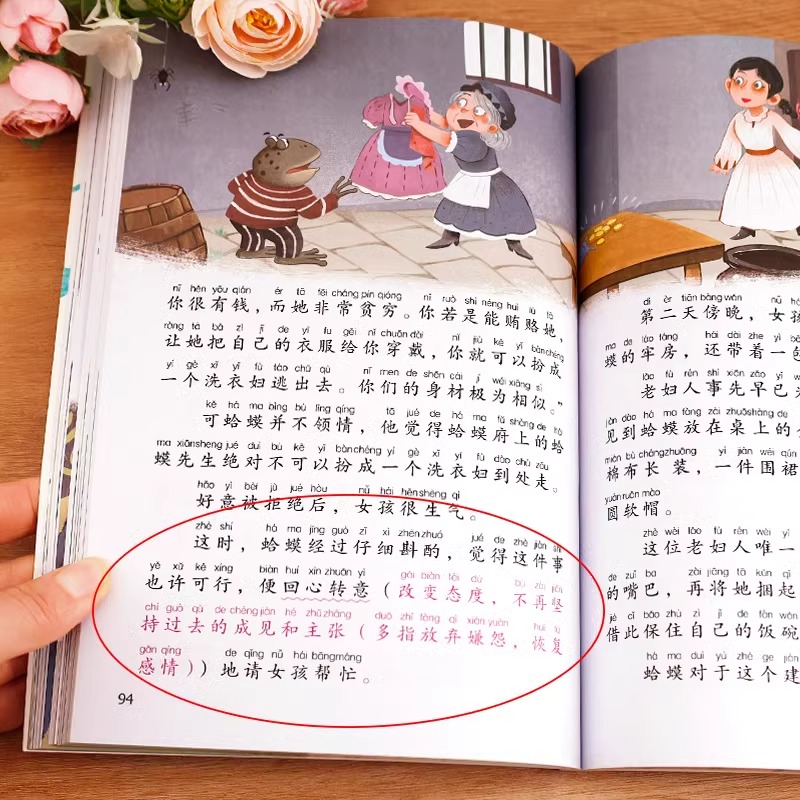 nǐ hěn yǒu qián ér tā fēi cháng pín qióng nǐ ruò shì néng huì lù tā
你很有钱，而她非常贫穷。你若是能贿赂她，
ràng tā bǎ zì jǐ de yī fu gěi nǐ chuān dài nǐ jiù kě yǐ bàn chéng
让她把自己的衣服给你穿戴，你就可以扮成
yí gè xǐ yī fù táo chū qù nǐ men de shēn cái jí wéi xiāng sì
一个洗衣妇逃出去。你们的身材极为相似。”
kě há ma bìng bù lǐng qíng tā jué de há ma fǔ shàng de há
可蛤蟆并不领情，他觉得蛤蟆府上的蛤
ma xiānsheng jué duì bù kě yǐ bàn chéng yí gè xǐ yī fù dào chù zǒu
蟆先生绝对不可以扮成一个洗衣妇到处走。
hǎo yì bèi jù jué hòu nǚ hái hěn shēng qì
好意被拒绝后，女孩很生气。
zhè shí há ma jīng guò zǐ xì zhēn zhuó jué de zhè jiàn shì
这时，蛤蟆经过仔细斟酌，觉得这件事
yě xǔ kě xíng biàn huí xīn zhuǎn yì gǎi biàn tài dù bú zài jiān
也许可行，便回心转意（改变态度，不再坚
chí guò qù de chéng jiàn hé zhǔ zhāng duō zhǐ fàng qì xián yuàn huī fù
持过去的成见和主张（多指放弃嫌怨，恢复
gǎn qíng de qǐng nǚ hái bāng máng
感情））地请女孩帮忙。
94
dì èr tiān bàng wǎn nǚ
第二天傍晚，女孩
ma de láo fáng hái dài zhe yì
蟆的牢房，还带着一包
lǎo fù rén shì xiān zǎo yǐ
老妇人事先早已
jiàn dào há ma fàng zài zhuō shàng de
见到蛤蟆放在桌上的
mián bù cháng zhuāng yí jiàn wéi qún
棉布长装，一件围裙
yuán ruǎn mào
圆软帽。
zhè wèi lǎo fù rén wéi yī
这位老妇人唯一
de zuǐ ba zài jiāng tā kǔn qǐ
的嘴巴，再将她捆起
jiè cǐ bǎo zhù zì jǐ de fàn wǎn
借此保住自己的饭碗
há ma duì yú zhè ge jiàn
蛤蟆对于这个建